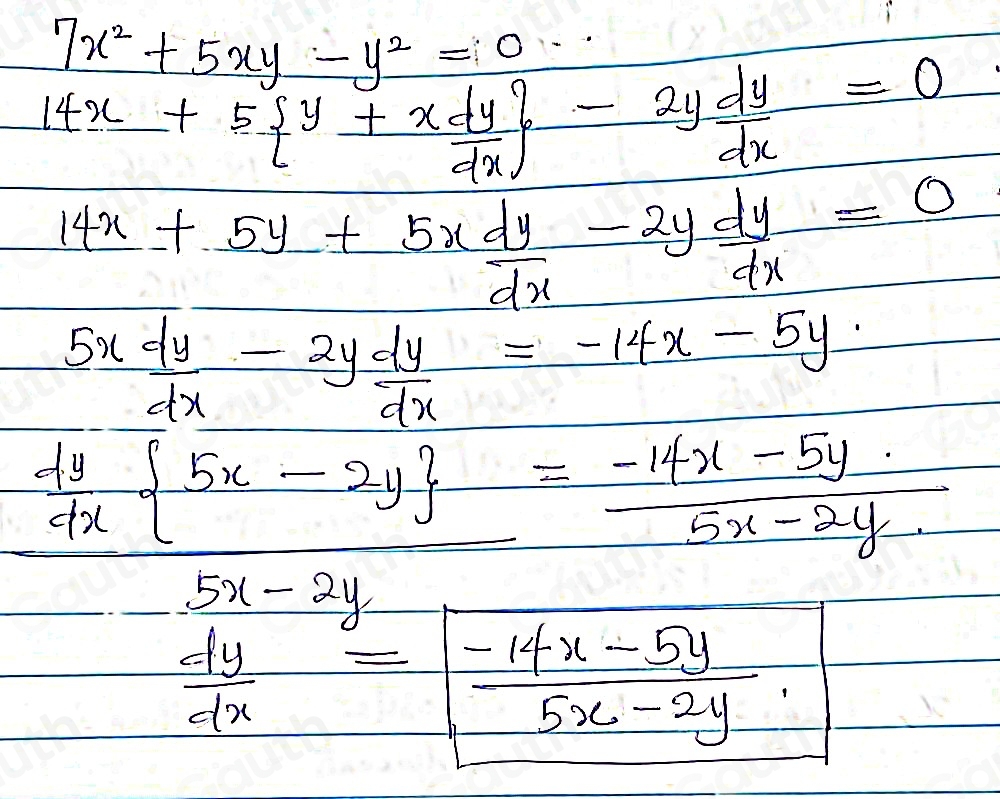 7x² + 5xy - y² = 0
14x + 5{y + x dy/dx} - 2y dy/dx = 0
14x + 5y + 5x dy/dx - 2y dy/dx = 0
5x dy/dx - 2y dy/dx = -14x - 5y.
dy/dx {5x - 2y} / 5x - 2y = -14x - 5y. / 5x - 2y.
dy/dx = -14x - 5y / 5x - 2y.